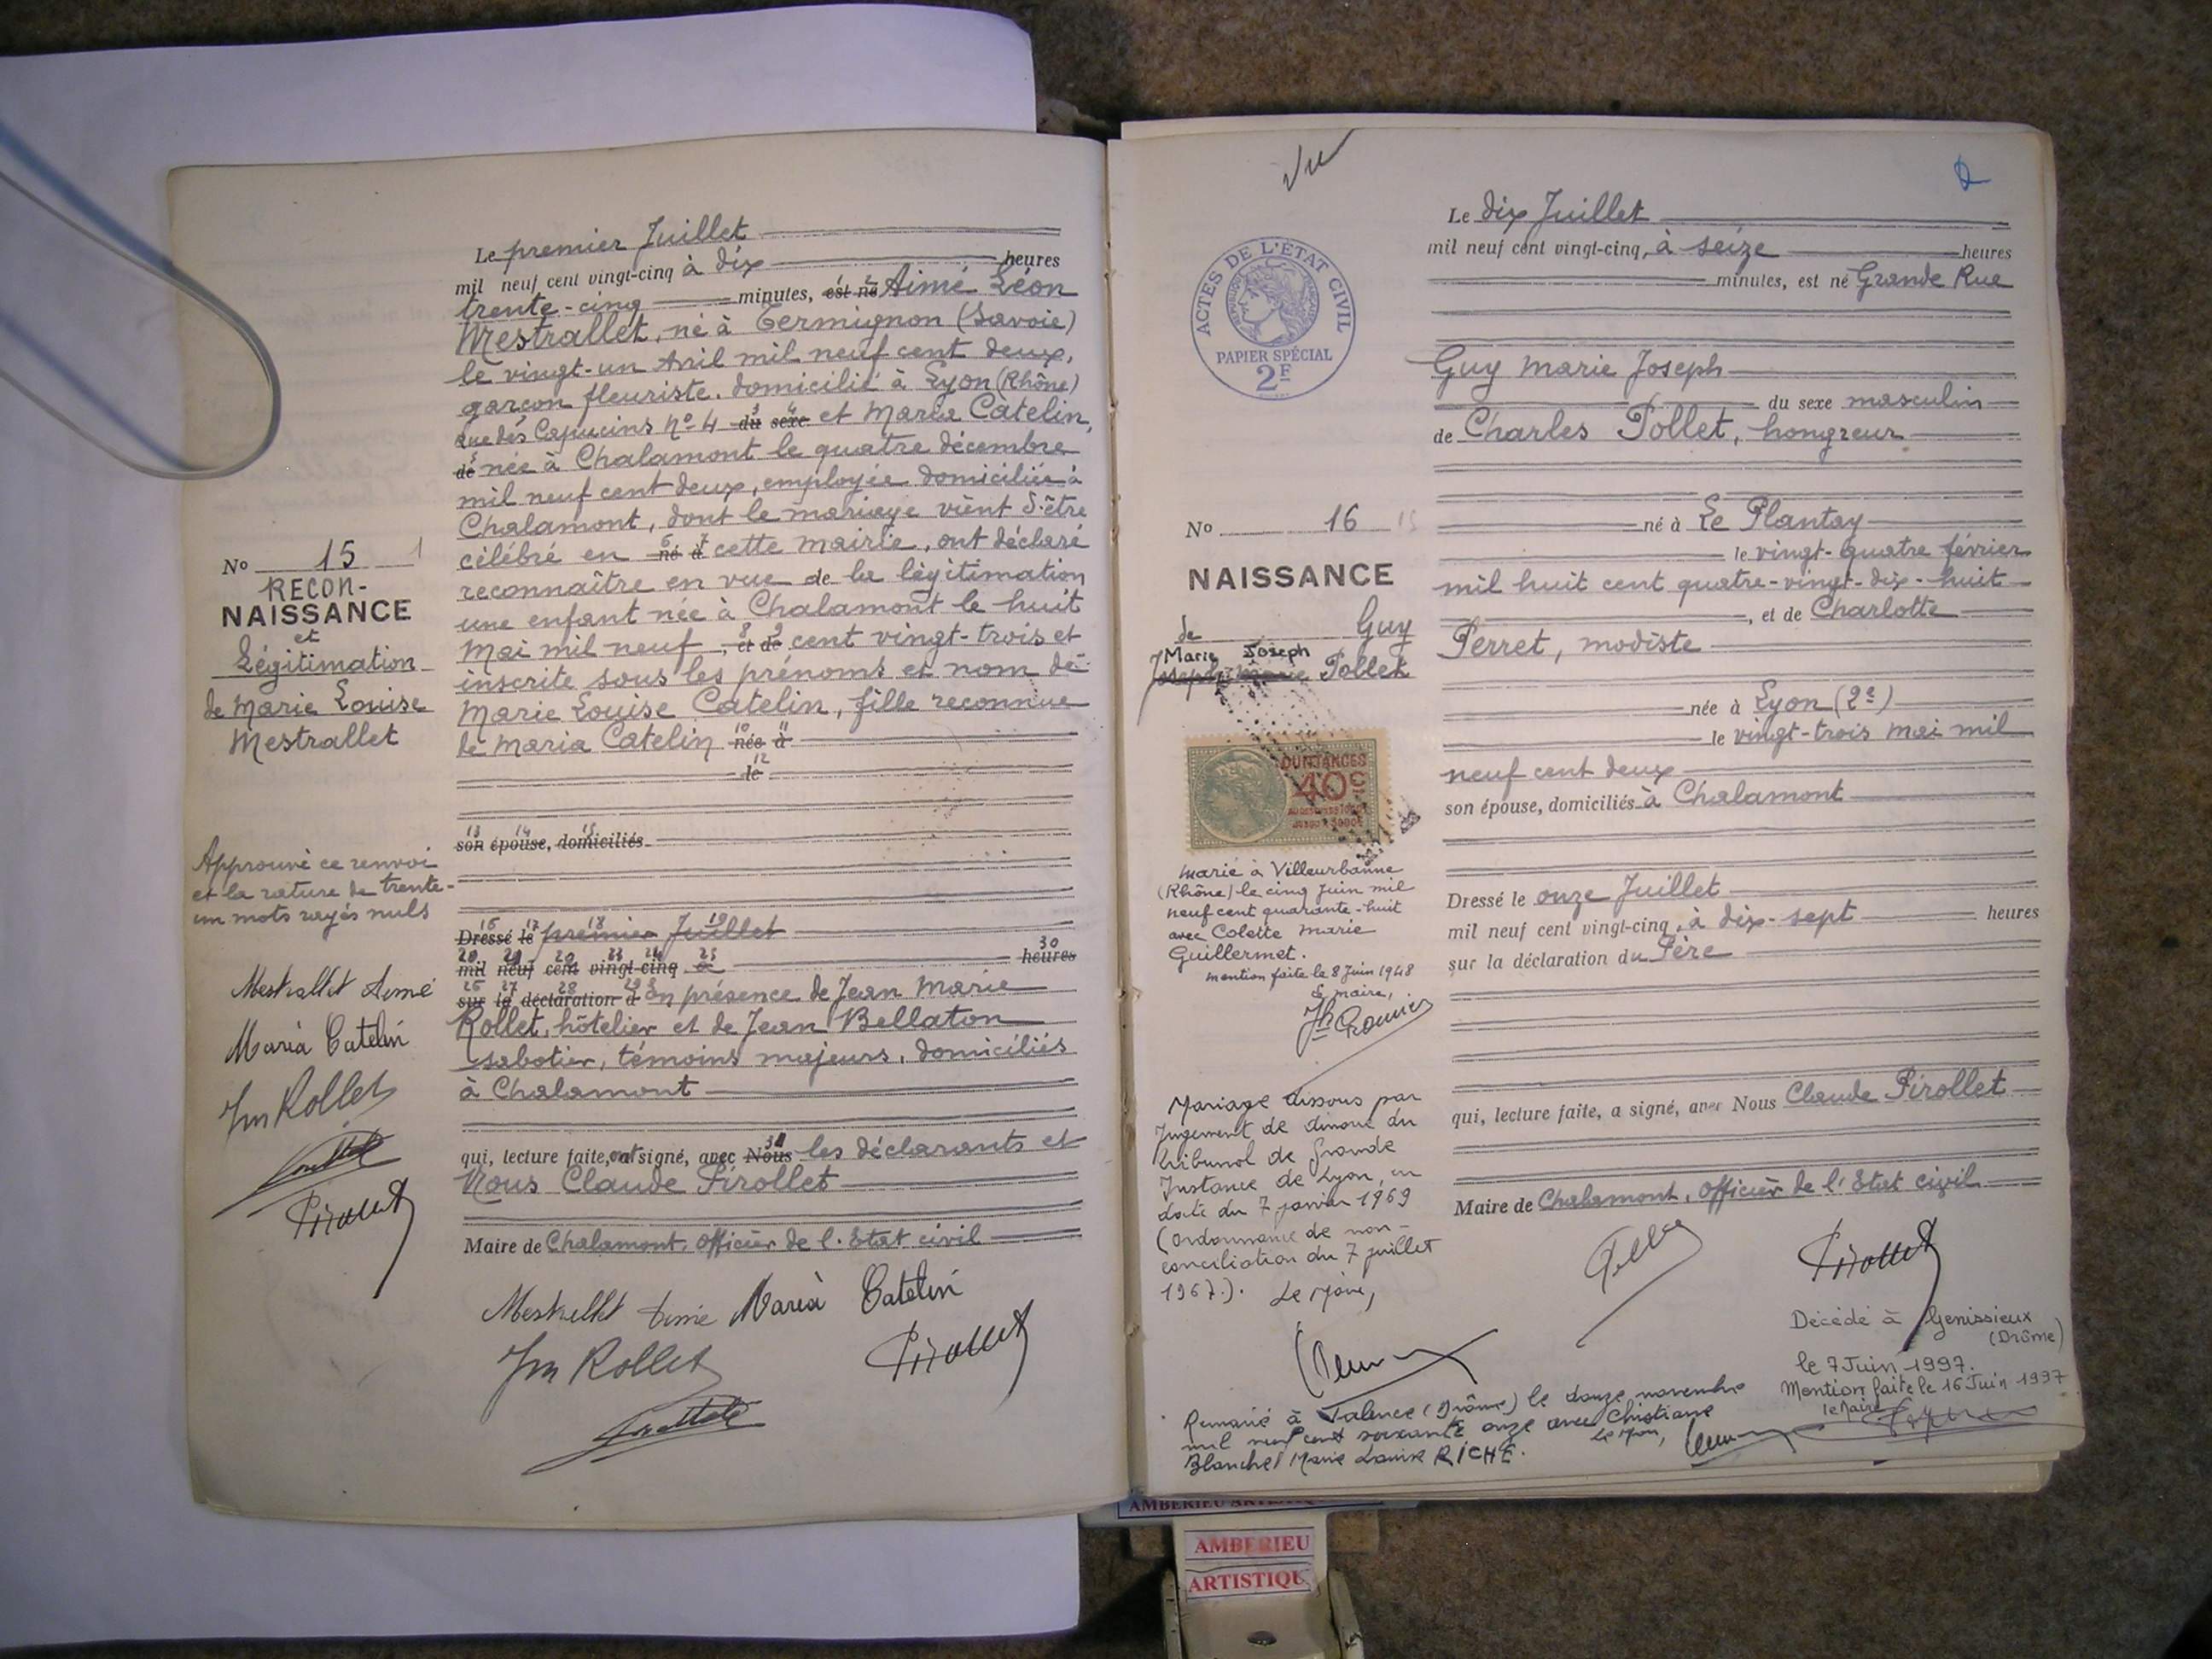 Le premier Juillet
mil neuf cent vingt-cinq à dix heures
trente-cinq minutes, est né Aimé Léon
Mestrallet, né à Termignon (Savoie)
le vingt-un Avril mil neuf cent deux,
garçon fleuriste, domicilié à Lyon (Rhône)
Rue des Capucins no 4 du sexe et Maria Catelin,
de née à Chalamont le quatre décembre
mil neuf cent deux, employée domiciliée à
Chalamont, dont le mariage vient d'être
célébré en né à cette mairie, ont déclaré
reconnaître en vue de la légitimation
une enfant née à Chalamont le huit
Mai mil neuf, et de cent vingt-trois et
inscrite sous les prénoms et nom de
Marie Louise Catelin, fille reconnue
de Maria Catelin née à
le
son épouse, domiciliés
Dressé le premier Juillet
mil neuf cent vingt-cinq à heures
sur la déclaration d en présence de Jean Marie
Rollet, hôtelier et de Jean Bellaton
sabotier, témoins majeurs, domiciliés
à Chalamont
qui, lecture faite, ont signé, avec Nous les déclarants et
Nous Claude Pirollet
Maire de Chalamont, Officier de l'Etat civil
Mestrallet Aimé Maria Catelin
Jm Rollet Pirollet
No 15 1
RECON-
NAISSANCE
et
Légitimation
de Marie Louise
Mestrallet
Approuvé ce renvoi
et la rature de trente-
un mots rayés nuls
Mestrallet Aimé
Maria Catelin
Jm Rollet
Pirollet
Vu
2
ACTES DE L'ÉTAT CIVIL
PAPIER SPÉCIAL
2F
No 16 15
NAISSANCE
de Guy
Marie Joseph
Joseph Marie Pollet
QUITTANCES
40c
Marié à Villeurbanne
(Rhône) le cinq juin mil
neuf cent quarante-huit
avec Colette Marie
Guillermet.
mention faite le 8 Juin 1948
Le maire,
Mariage dissous par
Jugement de divorce du
tribunal de Grande
Instance de Lyon, en
date du 7 janvier 1969
(ordonnance de non-
conciliation du 7 juillet
1967.). Le Maire,
Remarié à Valence (Drôme) le douze novembre
mil neuf cent soixante onze avec Christiane
Blanche Marie Louise RICHE. Le Maire,
Le dix Juillet
mil neuf cent vingt-cinq, à seize heures
minutes, est né Grande Rue
Guy Marie Joseph
du sexe masculin
de Charles Pollet, hongreur
né à Le Plantay
le vingt-quatre février
mil huit cent quatre-vingt-dix-huit
, et de Charlotte
Perret, modiste
née à Lyon (2e)
le vingt-trois Mai mil
neuf cent deux
son épouse, domiciliés à Chalamont
Dressé le onze Juillet
mil neuf cent vingt-cinq, à dix-sept heures
sur la déclaration du Père
qui, lecture faite, a signé, avec Nous Claude Pirollet
Maire de Chalamont, Officier de l'Etat civil
Pollet Pirollet
Décédé à Génissieux
(Drôme)
le 7 Juin 1997.
Mention faite le 16 Juin 1997
le Maire
AMBERIEU ARTISTIQUE
AMBERIEU
ARTISTIQU